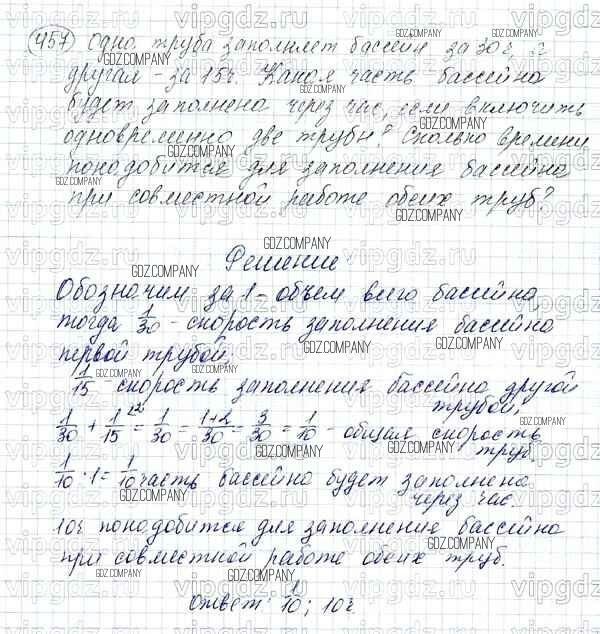 457 Одна труба заполняет бассейн за 30 ч, а
другая - за 15 ч. Какая часть бассейна
будет заполнена через час, если включить
одновременно две трубы? Сколько времени
понадобится для заполнения бассейна
при совместной работе обеих труб?
Решение
Обозначим за 1 - объем всего бассейна,
тогда 1/30 - скорость заполнения бассейна
первой трубой,
1/15 - скорость заполнения бассейна другой
трубой,
1/30 + 1/15 = 1/30 = 1+2/30 = 3/30 = 1/10 - общая скорость
труб.
1/10 · 1 = 1/10 часть бассейна будет заполнена
через час.
10 ч понадобится для заполнения бассейна
при совместной работе обеих труб.
Ответ: 1/10; 10 ч
GDZ.COMPANY
vipgdz.ru